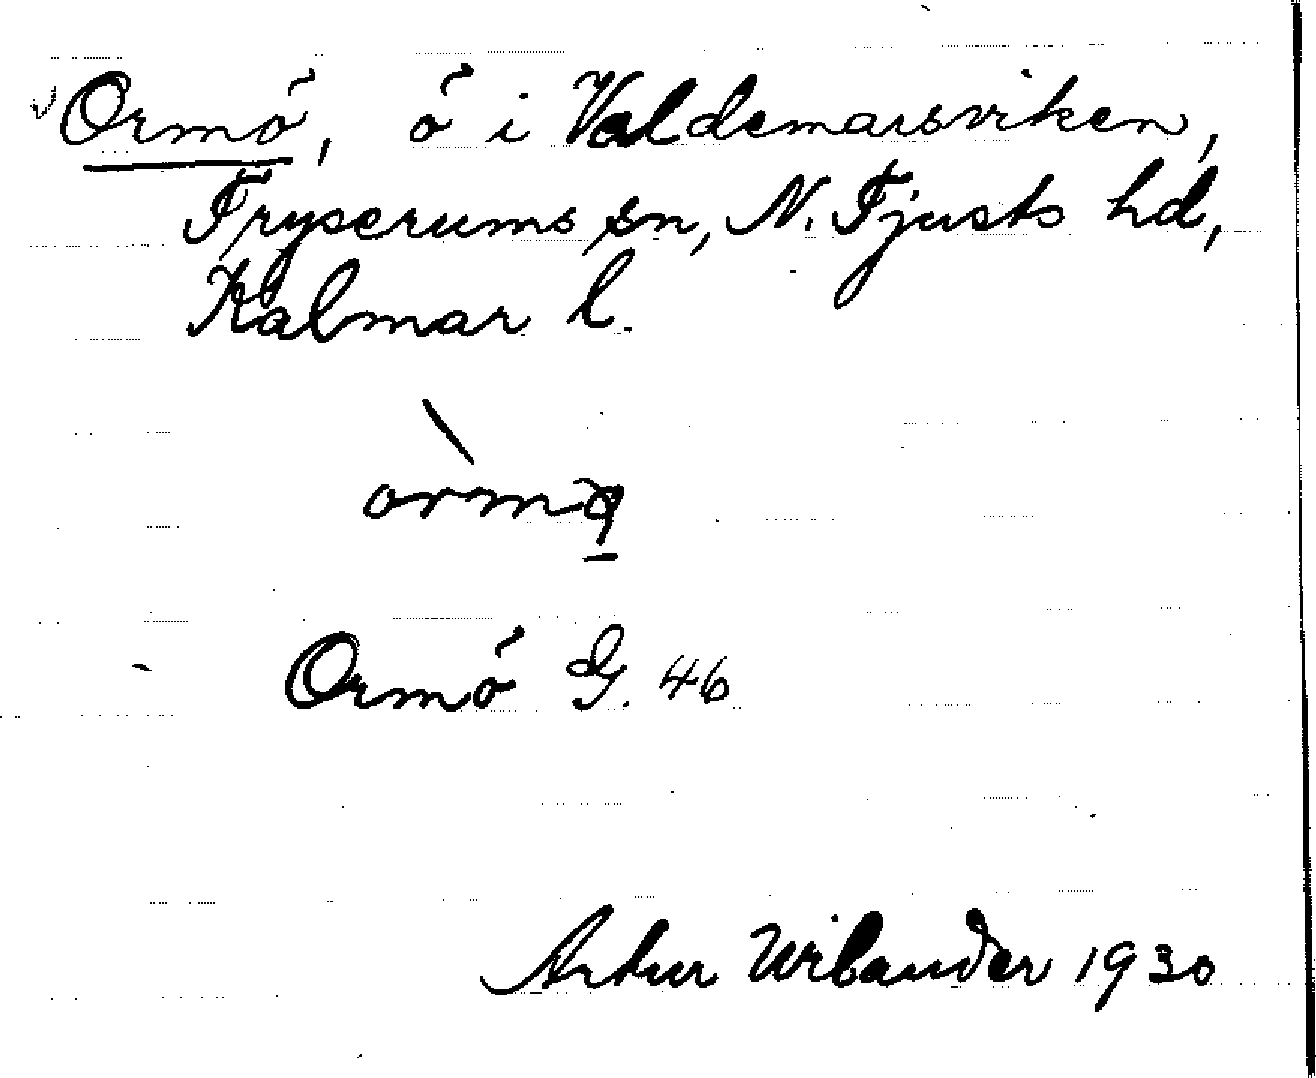 Ormö, ö i Valdemarsviken,
Tryserums sn, N. Tjusts hd,
Kalmar l.
Ormö G. 46
Artur Wilander 1930